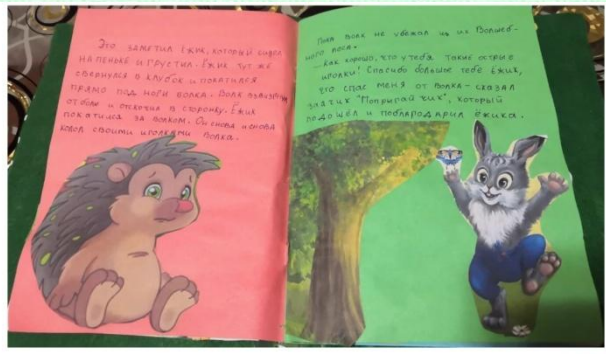 Это заметил Ёжик, который сидел
на пеньке и грустил. Ёжик тут же
свернулся в клубок и покатился
прямо под ноги волка. Волк
от боли и отскочил в сторонку. Ёжик
покатился за волком. Он снова и снова
колол своими иголками волка.
Пока волк не убежал из их Волшеб-
ного леса.
- Как хорошо, что у тебя такие острые
иголки! Спасибо большое тебе Ёжик,
что спас меня от волка - сказал
зайчик "Попрыгайчик", который
подошёл и поблагодарил ёжика.